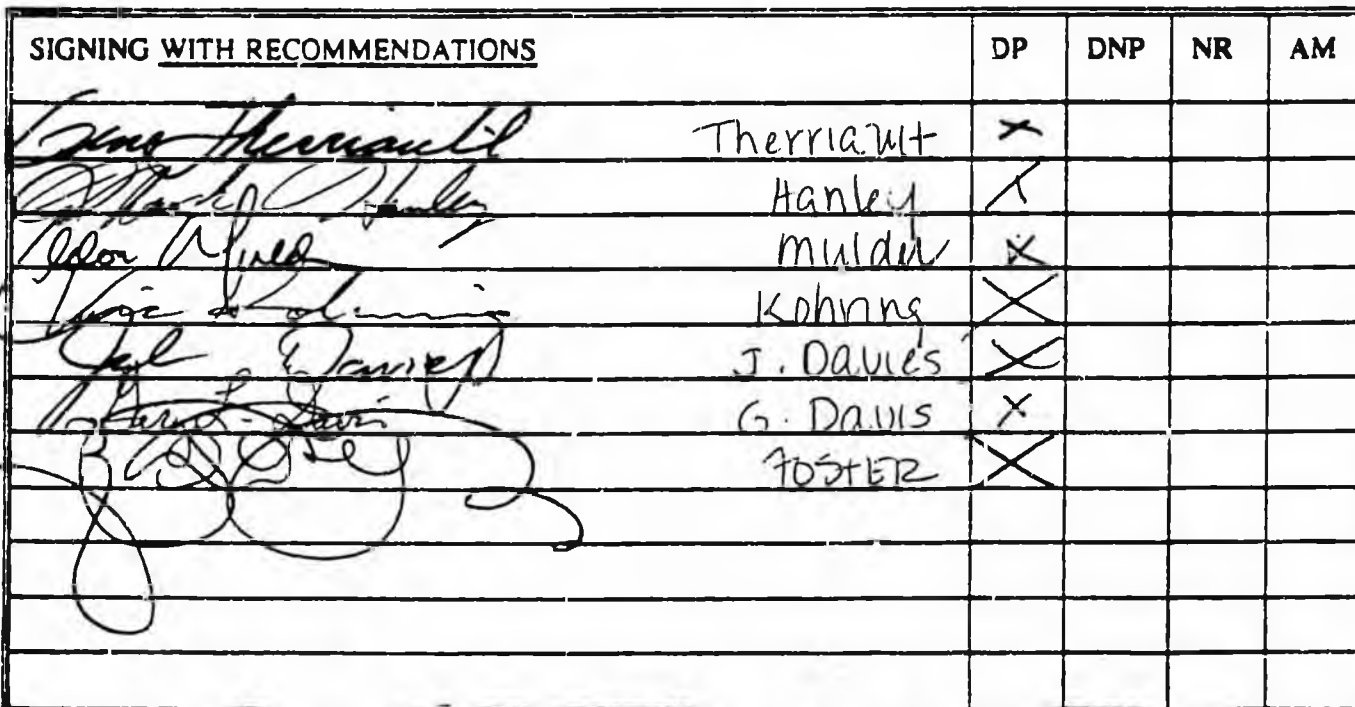 SIGNING WITH RECOMMENDATIONS DP DNP NR AM
Gene Therriault Therriault x
Mark Hanley Hanley x
Eldon Mulder Mulder x
Vic Kohring Kohring X
John Davies J. Davies X
Gary L. Davis G. Davis x
FOSTER X